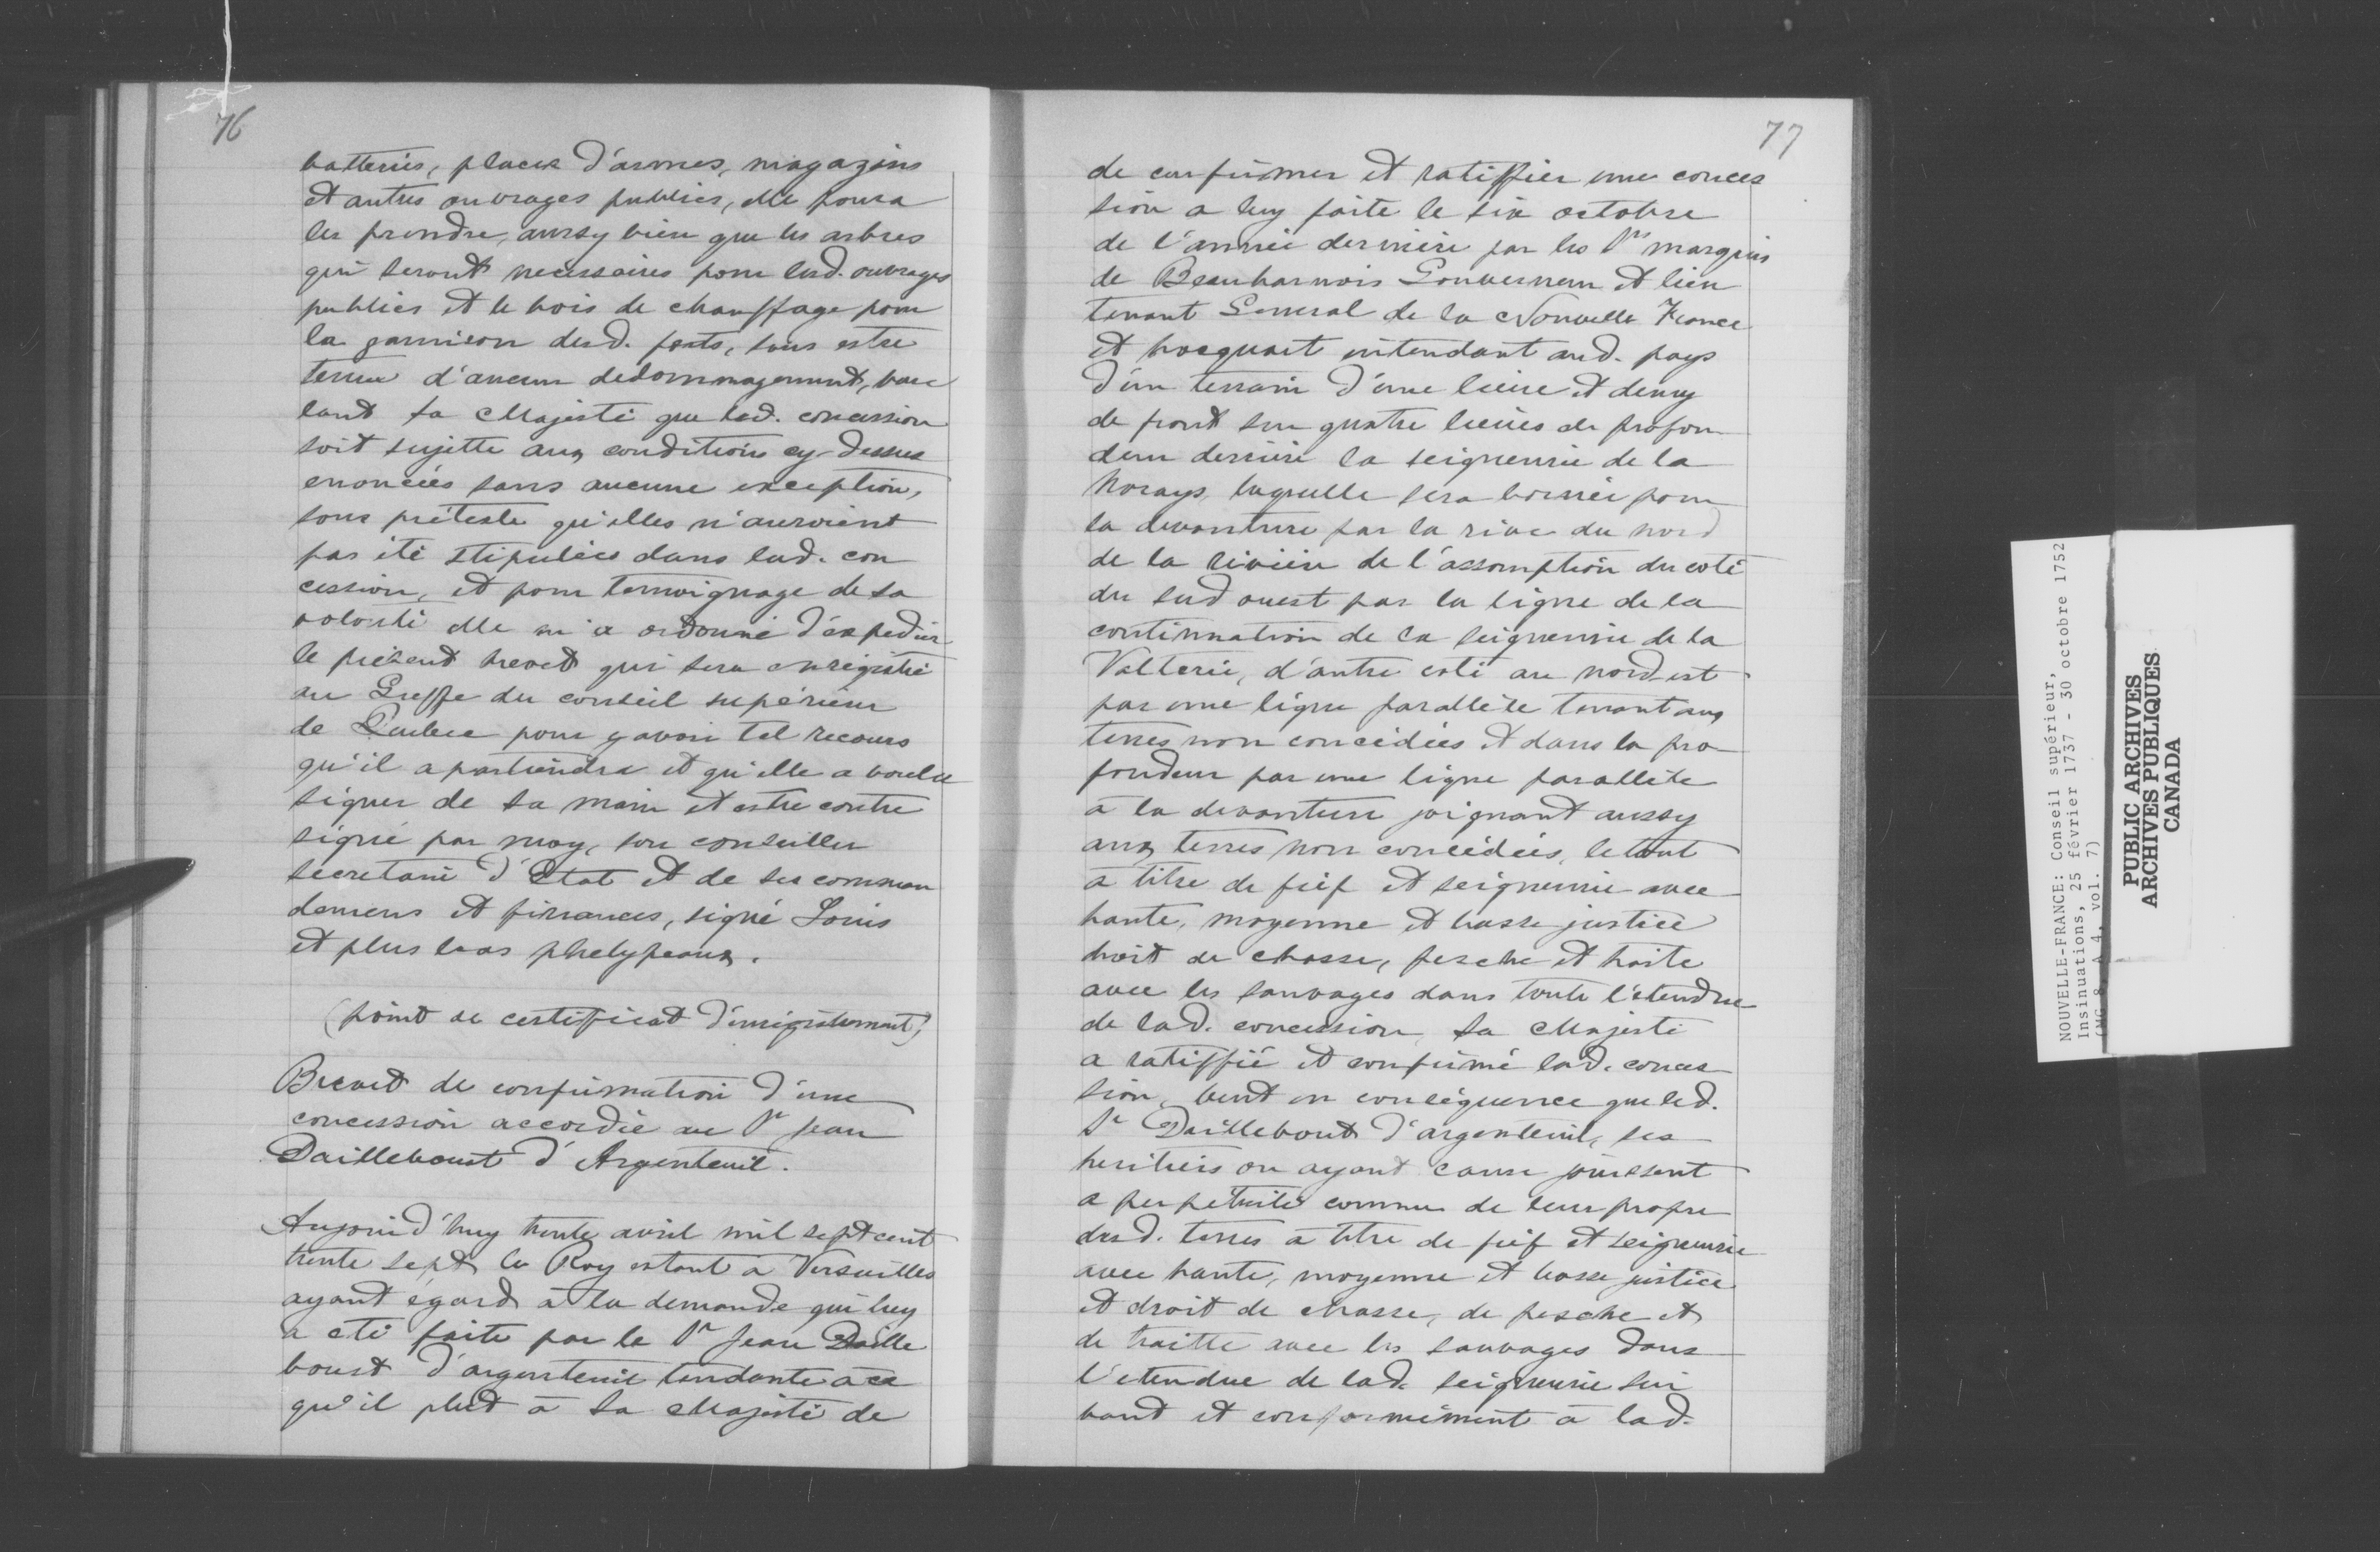 76
batteries, places d'armes, magazins
et autres ouvrages publics, elle poura
les prendre, aussy bien que les arbres
qui seront necessaires pour lesd. ouvrages
publics et le bois de chauffage pour
la garnison desd. forts, sans estre
tenue d'aucun dedommagement, vou
lant sa Majesté que lad. concession
soit sujette aux conditions cy-dessus
enoncées sans aucune exception,
sous préteste qu'elles n'auroient
pas été stipulées dans lad. con
cession, et pour temoignage de sa
volonté elle m'a ordonné d'expedier
le présent brevet qui sera enrégistré
au Greffe du conseil supérieur
de Québec pour y avoir tel recours
qu'il apartiendra et qu'elle a voulu
signer de sa main et estre contre
signé par moy, son conseiller
secretaire d'Etat et de ses comman
demens et finances, signé Louis
et plus bas phelypeaux.
(point de certifficat d'enrégistrement)
Brevet de confirmation d'une
concession accordée au Sr Jean
Dailleboust d'Argenteuil.
Aujourd'huy trente avril mil sept cent
trente sept le Roy estant à Versailles
ayant égard à la demande qui luy
a été faite par le Sr Jean Daille
boust d'argenteuil tendante à ce
qu'il plut à Sa Majesté de
77
de confirmer et ratiffier une conces
sion a luy faite le six octobre
de l'année derniere par les Srs marquis
de Beauharnois Gouverneur et lieu
tenant General de la Nouvelle France
et hocquart intendant aud. pays
d'un terrain d'une lieue et demy
de front sur quatre lieues de profon
deur derriere la seigneurie de la
Norays, laquelle sera bornée pour
la devanture par la rive du nord
de la riviere de l'assomption du coté
du sud ouest par la ligne de la
continuation de la seigneurie de la
Valterie, d'autre coté au nord-est
par une ligne parallèle tenant aux
terres non concedées et dans la pro
fondeur par une ligne parallèle
à la devanture joignant aussy
aux terres non concédées, le tout
à titre de fief et seigneurie avec
haute, moyenne et basse justice
droit de chasse, pesche et traite
avec les sauvages dans toute l'étendue
de lad. concession, sa Majesté
a ratiffié et confirmé lad. conces
sion, veut en conséquence que led.
Sr Dailleboust d'argenteuil, ses
heritiers ou ayant cause jouissent
a perpétuité comme de leur propre
desd. terres à titre de fief et seigneurie
avec haute, moyenne et basse justice
et droit de chasse, de pesche et
de traitte avec les sauvages dans
l'étendue de lad. seigneurie sui
vant et conformément à lad.
NOUVELLE-FRANCE: Conseil supérieur,
Insinuations, 25 février 1737 - 30 octobre 1752
(MG 8, A 4, vol. 7)
PUBLIC ARCHIVES
ARCHIVES PUBLIQUES
CANADA